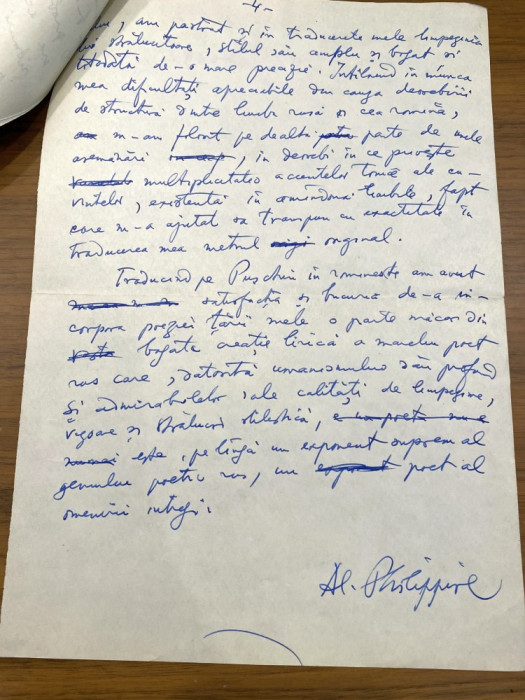 -4-
am pastrat și în traducerile mele limpezimea
lui strălucitoare, stilul său amplu și bogat și
totodată de-o mare precizie. Întîlnind în munca
mea dificultăți apreciabile din cauza deosebirii
de structură dintre limba rusă și cea romînă,
m-am folosit pe dealtă parte de unele
asemănări în deosebi în ce privește
multiplicitatea accentelor tonice ale cu-
vintelor, existentă în amîndouă limbile, fapt
care m-a ajutat să transpun cu exactitate în
traducerea mea metrul original.
Traducînd pe Pușchin în romînește am avut
satisfacția și bucuria de-a în-
corpora poeziei țării mele o parte măcar din
bogata creație lirică a marelui poet
rus care, datorită umanismului său profund
și admirabilelor sale calități de limpezime,
vigoare și străluciri stilistică,
este, pe lîngă un exponent suprem al
geniului poetic rus, un poet al
omenirii întregi.
Al. Philippide